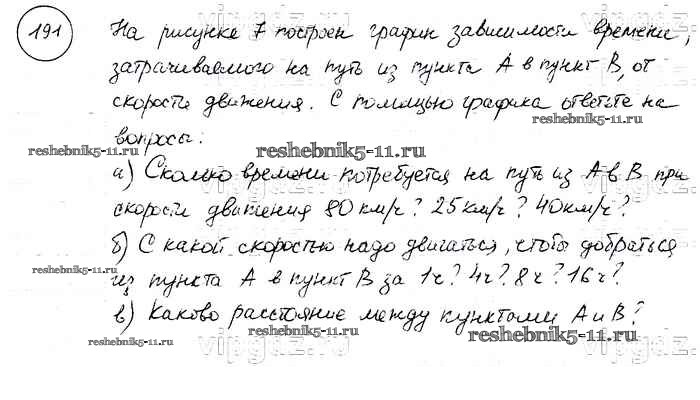 191
На рисунке 7 построен график зависимости времени,
затрачиваемого на путь из пункта А в пункт В, от
скорости движения. С помощью графика ответьте на
вопросы:
reshebnik5-11.ru
reshebnik5-11.ru
reshebnik5-11.ru
reshebnik5-11.ru
а) Сколько времени потребуется на путь из А в В при
скорости движения 80 км/ч? 25 км/ч? 40 км/ч?
б) С какой скоростью надо двигаться, чтобы добраться
reshebnik5-11.ru
из пункта А в пункт В за 1 ч? 4 ч? 8 ч? 16 ч?
в) Каково расстояние между пунктами А и В?
reshebnik5-11.ru
reshebnik5-11.ru
reshebnik5-11.ru
vipgdz.ru